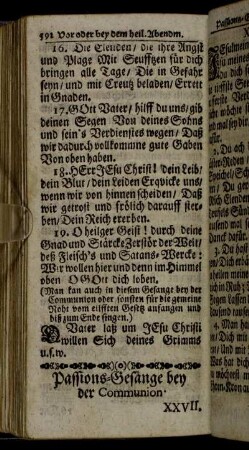 592 Vor oder bey dem heil. Abendm.
16. Die Elenden/ die ihre Angst
und Plage Mit Seufftzen für dich
bringen alle Tage/ Die in Gefahr
seyn/ und mit Creutz beladen/ Errett
in Gnaden.
17. Gott Vater/ hilff du uns/ gib
deinen Segen Von deines Sohns
und sein's Verdienstes wegen/ Daß
wir dadurch vollkomme gute Gaben
Von oben haben.
18. HErr JEsu Christ! dein Leib/
dein Blut/ dein Leiden Erqvicke uns/
wenn wir von hinnen scheiden/ Daß
wir getrost und frölich darauff ster-
ben/ Dein Reich ererben.
19. O heilger Geist! durch deine
Gnad und Stärcke Zerstör der Welt/
deß Fleisch's und Satans-Wercke:
Wir wollen hier und denn im Himmel
oben GOtt dich loben.
(Man kan auch in diesem Gesange bey der
Communion oder sonsten für die gemeine
Noht vom eilfften Gesetz anfangen und
biß zum Ende singen.)
O Vater laß um JEsu Christi
willen Sich deines Grimms
u.s.w.
Passions-Gesänge bey
der Communion.
XXVII.